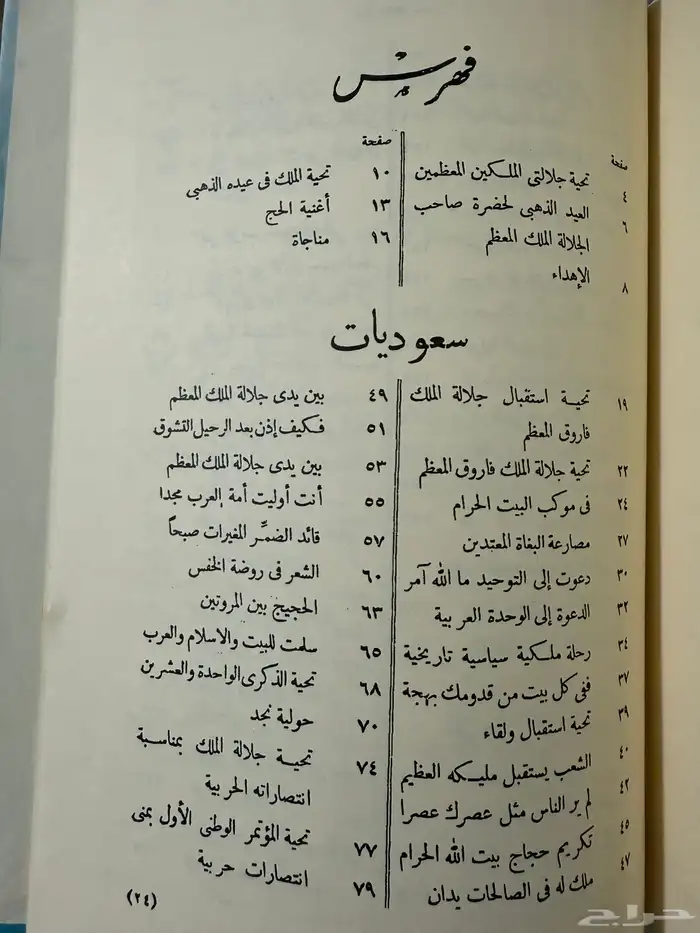 فهرس
صفحة
٤ تحية جلالتى الملكين المعظمين
٦ العيد الذهبى لحضرة صاحب
الجلالة الملك المعظم
٨ الإهداء
صفحة
١٠ تحية الملك فى عيده الذهبى
١٣ أغنية الحج
١٦ مناجاة
سعوديات
١٩ تحية استقبال جلالة الملك
فاروق المعظم
٢٢ تحية جلالة الملك فاروق المعظم
٢٤ فى موكب البيت الحرام
٢٧ مصارعة البغاة المعتدين
٣٠ دعوت إلى التوحيد ما الله آمر
٣٢ الدعوة إلى الوحدة العربية
٣٤ رحلة ملكية سياسية تاريخية
٣٧ ففى كل بيت من قدومك بهجة
٣٩ تحية استقبال ولقاء
٤٠ الشعب يستقبل مليكه العظيم
٤٢ لم ير الناس مثل عصرك عصرا
٤٥ تكريم حجاج بيت الله الحرام
٤٧ ملك له فى الصالحات يدان
٤٩ بين يدى جلالة الملك المعظم
٥١ فكيف إذن بعد الرحيل التشوق
٥٣ بين يدى جلالة الملك المعظم
٥٥ أنت أوليت أمة العرب مجدا
٥٧ قائد الضمَّر المغيرات صبحاً
٦٠ الشعر فى روضة الخفس
٦٣ الحجيج بين المروتين
٦٥ سلمت للبيت والاسلام والعرب
٦٨ تحية الذكرى الواحدة والعشرين
٧٠ حولية نجد
٧٤ تحية جلالة الملك بمناسبة
انتصاراته الحربية
٧٧ تحية المؤتمر الوطنى الأول بمنى
٧٩ انتصارات حربية
(٢٤)
حراج